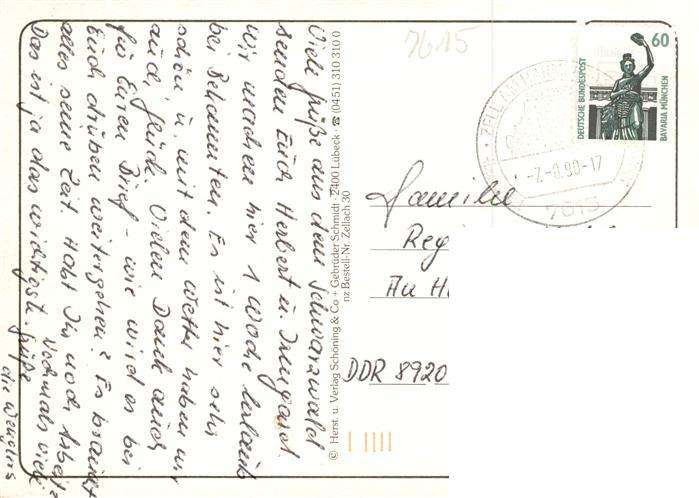 Viele Grüße aus dem Schwarzwald
senden Euch Herbert u. Irmgard.
Wir machen hier 1 Woche Urlaub
bei Bekannten. Es ist hier sehr
schön u. mit dem Wetter haben wir
auch Glück. Vielen Dank auch
für Euren Brief - wie wird es bei
Euch drüben weitergehen? Es braucht
alles seine Zeit. Habt Ihr noch Arbeit?
Das ist ja das wichtigste. Nochmals viele
Grüße
die Wenglers
© Herst. u. Verlag Schöning & Co + Gebrüder Schmidt · 2400 Lübeck · ☎ (0451) 310 310 0
nz Bestell-Nr. Zellach 30
7615
60
DEUTSCHE BUNDESPOST
BAVARIA MÜNCHEN
ZELL AM HARMERSBACH
-7.-9.90-17
7615
Familie
Reg
Au H
DDR 8920